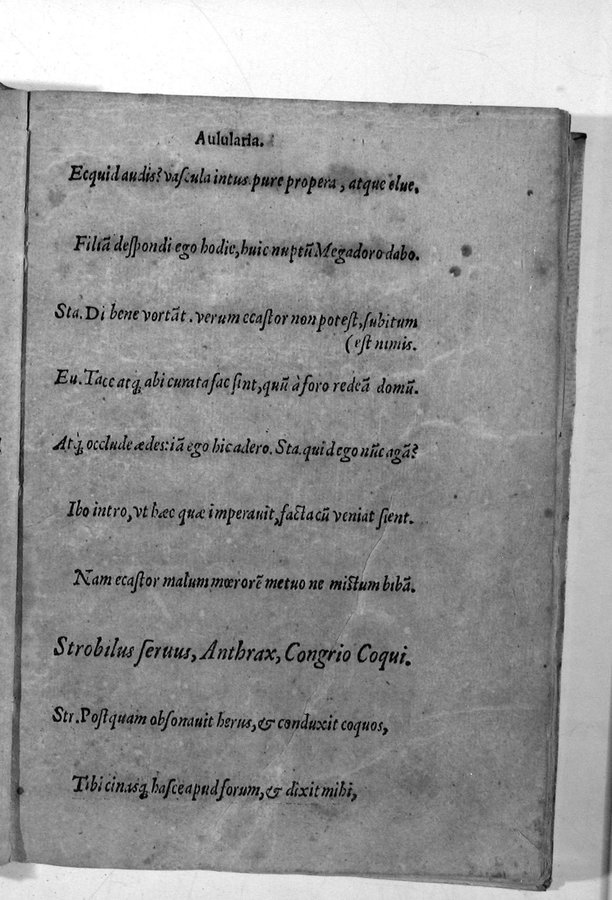 Aulularia.
Ecquid audis? vaſcula intus pure propera, atque elue.
Filiã deſpondi ego hodie, huic nuptũ Megadoro dabo.
Sta. Di bene vortãt. verum ecaſtor non poteſt, ſubitum
(eſt nimis.
Eu. Tace atq; abi curata fac ſint, quũ à foro redeã domũ.
Atq; occlude ædes: iã ego hic adero. Sta. quid ego nũc agã?
Ibo intro, vt hæc quæ imperauit, facta cũ veniat ſient.
Nam ecaſtor malum mœrorẽ metuo ne miſtum bibã.
Strobilus ſeruus, Anthrax, Congrio Coqui.
Str. Poſtquam obſonauit herus, & conduxit coquos,
Tibicinasq; haſce apud forum, & dixit mihi,